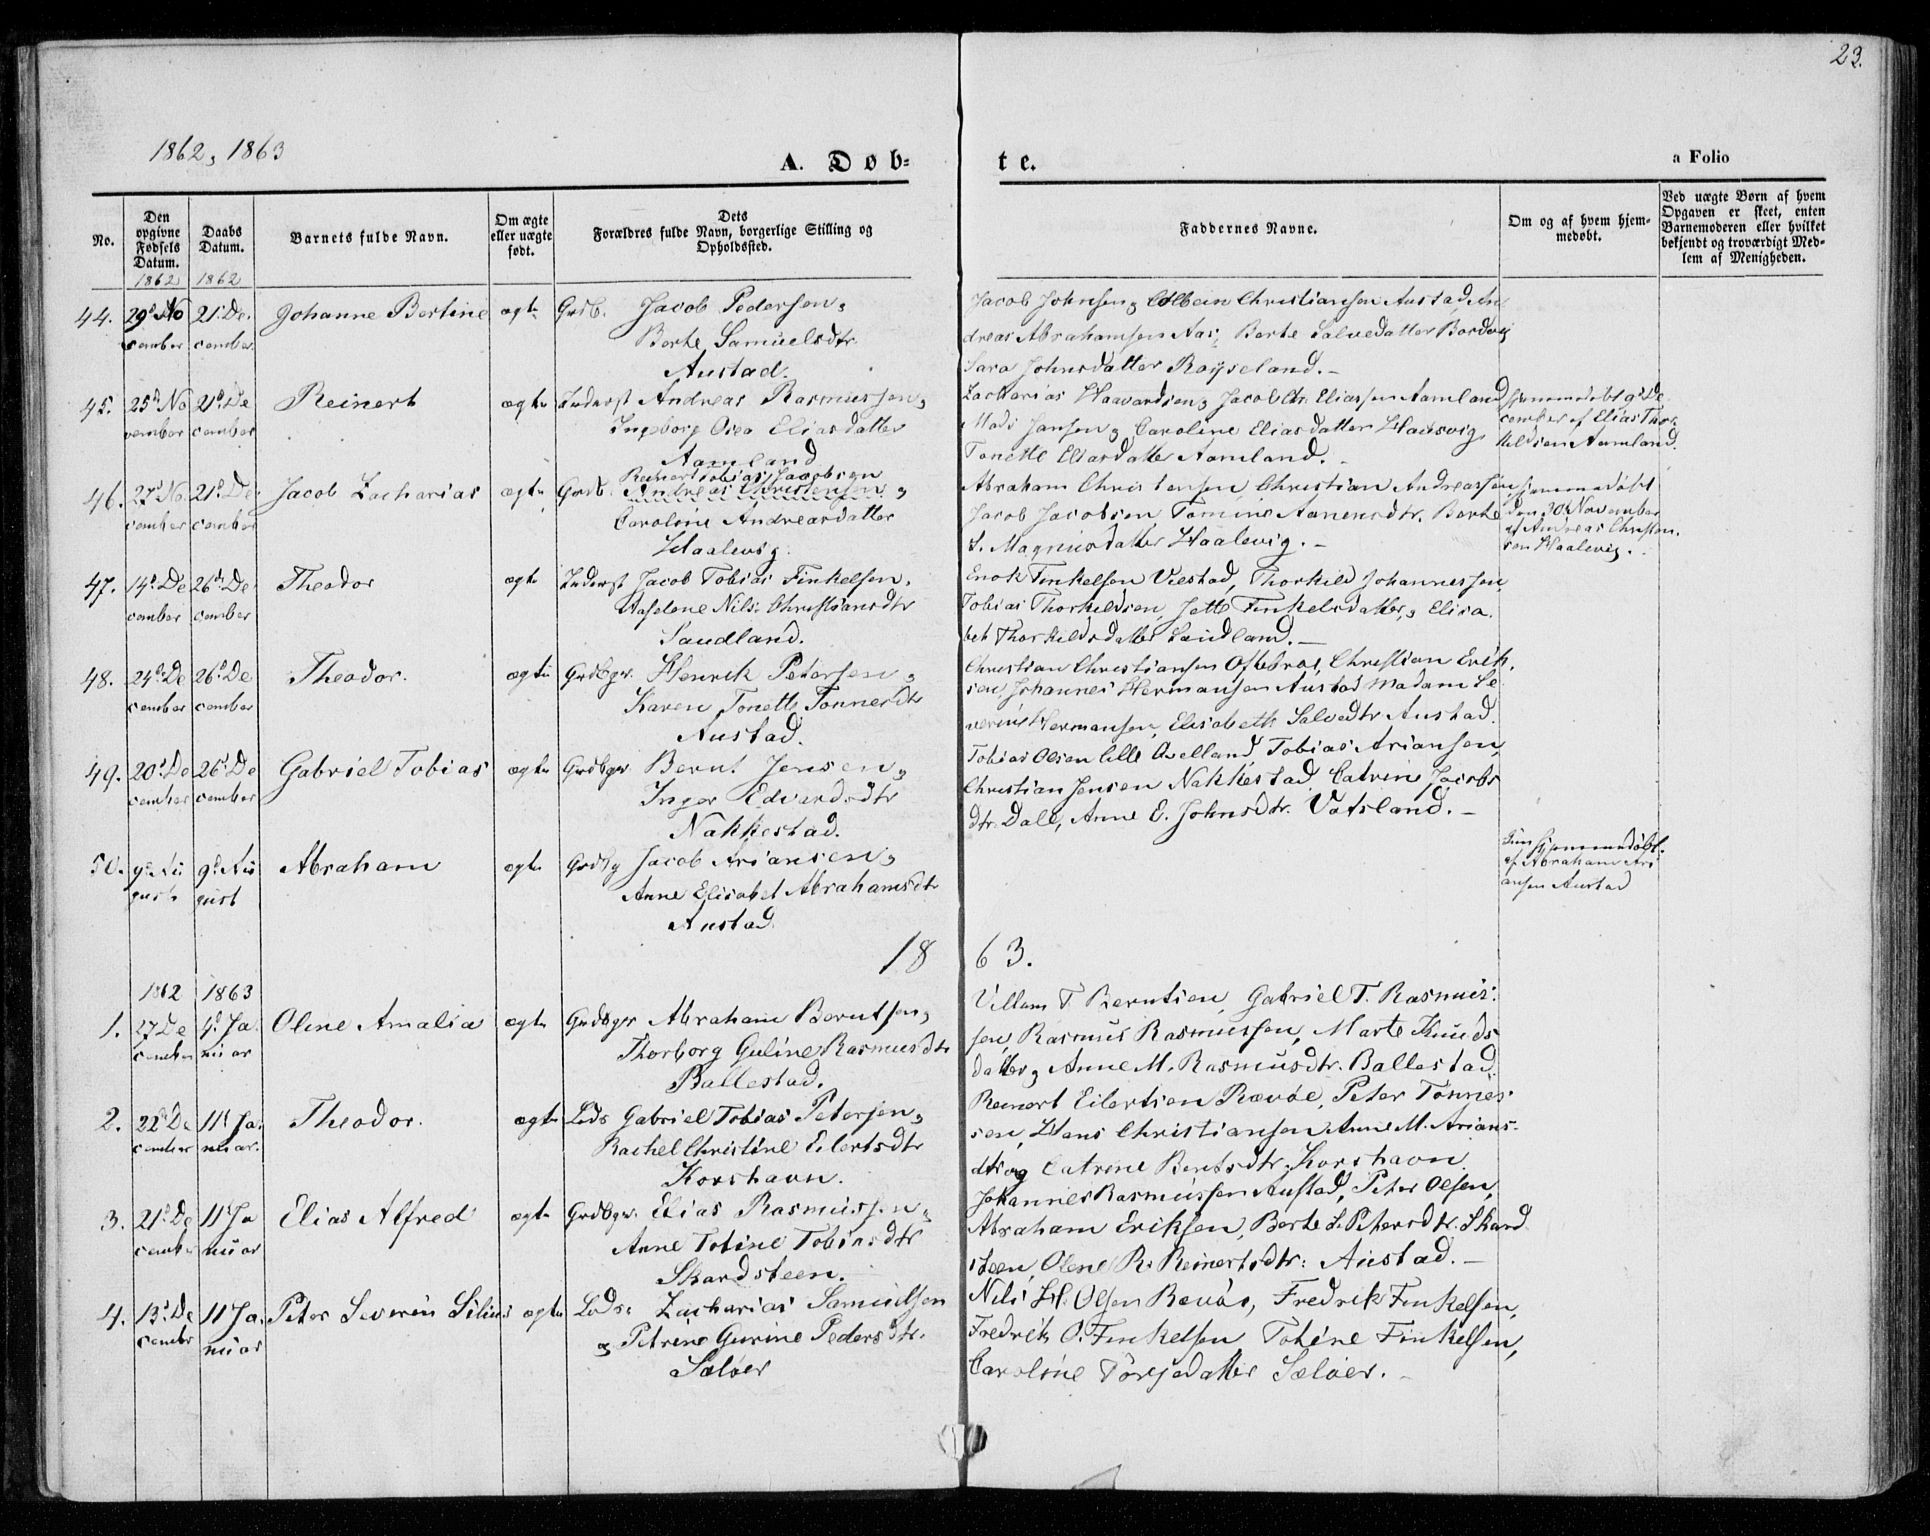 23.
1862, 1863
A. Døb-
te.
a Folio
No.
Den opgivne Fødsels Datum.
Daabs Datum.
Barnets fulde Navn.
Om ægte eller uægte født.
Dets Forældres fulde Navn, borgerlige Stilling og Opholdssted.
Faddernes Navne.
Om og af hvem hjem-
medøbt.
Ved uægte Børn af hvem
Opgaven er skeet, enten
Barnemoderen eller hvilket
bekjendt og troværdigt Med-
lem af Menigheden.
1862 1862
44. 29d No 21d De Johanne Bertine ægte Grdb. Jacob Pedersen,
vember cember Berte Samuelsdtr
Austad.
Jacob Johnsen, Colbein Christiansen Austad, An
dreas Abrahamsen Aas, Berte Salvedatter Bordvig
Sara Johnsdatter Røyseland. -
45. 25d No 21d De Reinert ægte Inderst Andreas Rasmussen,
vember cember Ingeborg Osea Eliasdatter
Aamland
Zacharias Haavardsen, Jacob Chr. Eliassen Aamland
Mads Jansen, Caroline Eliasdatter Hausvig
Tonette Eliasdatter Aamland. -
hjemmedøbt 9d De
cember af Elias Thor
kildsen Aamland.
46. 27d No 21d De Jacob Zacharias ægte Grdb. Andreas Christensen,
Reinert Tobias Jacobsen
vember cember Caroline Andreasdatter
Haalevig.
Abraham Christensen, Christian Andreassen
Jacob Jacobsen Tomine Aanensdtr. Berte
S. Magnusdatter Haalevig. -
hjemmedøbt
den 30d November
af Andreas Christen-
sen Haalevig. -
47. 14d De 26d De Theodor ægte Inderst Jacob Tobias Finkelsen,
cember cember Aaselene Nils Christiansdtr
Saudland.
Enok Finkelsen Viestad, Thorkild Johannessen,
Tobias Thorkildsen, Jette Finkelsdatter, Elisa
bet Thorkildsdatter Saudland. -
48. 24d De 26d De Theodor. ægte Grdbgr. Henrik Petersen,
cember cember Karen Tonette Tønnesdtr
Austad.
Christian Christiansen Oftebroe, Christian Erik-
sen, Johannes Hermansen Austad Madam Se
verine Hermansen, Elisabeth Salvedtr Austad.
49. 20d De 26d De Gabriel Tobias ægte Grdbgr Bernt Jensen,
cember cember Inger Edvardsdtr
Nakkestad.
Tobias Olsen Lille Qvelland Tobias Ariansen
Christian Jensen Nakkestad, Catrine Jacobs
dtr. Dale, Anne E. Johnsdtr. Vatsland. -
50. 9d Au 9d Au Abraham ægte Grdbg Jacob Ariansen,
gust gust Anne Elisabet Abrahamsdtr
Austad.
hjemmedøbt
af Abraham Ari
ansen Austad
18 63.
1862 1863
1. 27 De 4d Ja Oline Amalia ægte Grdbgr Abraham Berntsen,
cember nuar Thorborg Guline Rasmusdtr
Ballestad.
Villum T. Berntsen, Gabriel T. Rasmus-
sen, Rasmus Rasmussen, Marte Knuds
datter, Anne M. Rasmusdtr. Ballestad.
2. 22d De 11d Ja Theodor. ægte Lods Gabriel Tobias Petersen,
cember nuar. Rachel Christine Eilertsdtr
Korshavn.
Reinert Eilertsen Rævøe, Peter Tønnes-
sen, Hans Christiansen Anne M. Arians-
dtr og Catrine Berntsdtr. Korshavn.
3. 21d De 11d Ja Elias Alfred ægte Grdbgr. Elias Rasmussen,
cember nuar Anne Tobine Tobiasdtr
Skardsteen.
Johannes Rasmussen Austad, Peter Olsen,
Abraham Eriksen, Berte S. Petersdtr. Skard
steen, Olene R. Reinertsdtr: Austad. -
4. 13d De 11 Ja. Peter Severin Silius ægte Lods. Zacharias Samuelsen
cembr nuar og Petrine Gurine Pedersdtr.
Sæløer
Nils H. Olsen Revøe, Fredrik Finkelsen,
Fredrik O. Finkelsen Tobine Finkelsen,
Caroline Torjedatter Sæløer. -